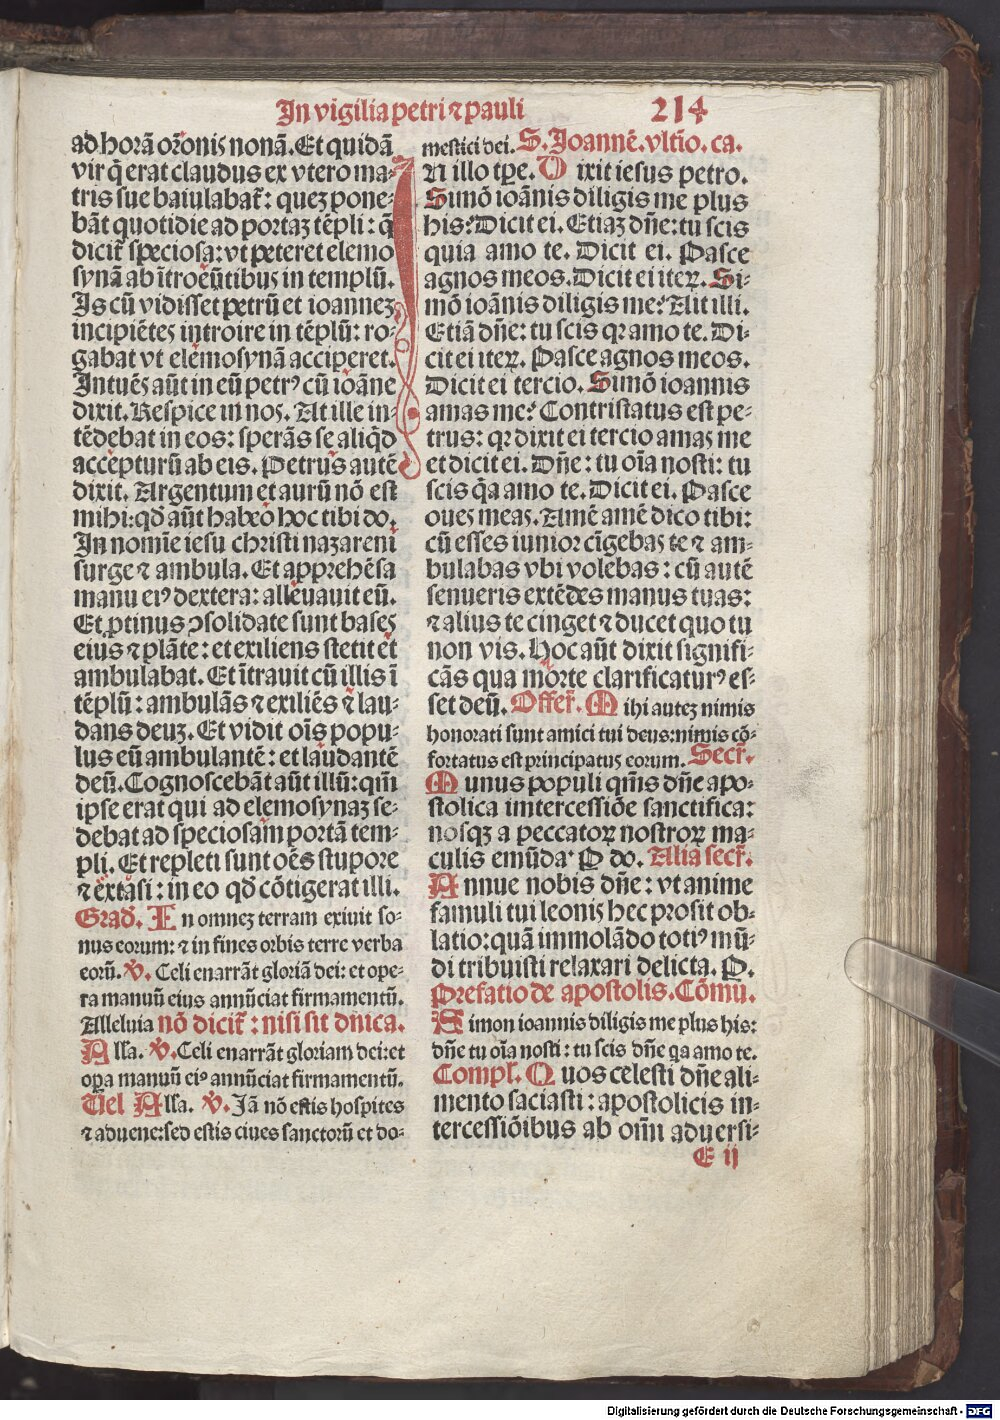 In vigilia petri ⁊ pauli 214
ad horã orõnis nonã. Et quidã
vir q̃ erat claudus ex vtero ma-
tris sue baiulabat̃: quez pone-
bãt quotidie ad portaz tẽpli: q̃
dicit̃ speciosa: vt peteret elemo
synã ab ĩtroeũtibus in templũ.
Is cũ vidisset petrũ et ioannez
incipiẽtes introire in tẽplũ: ro-
gabat vt elemosynã acciperet.
Intuẽs aũt in eũ petrꝰ cũ ioãne
dixit. Respice in nos. At ille in-
tẽdebat in eos: sperãs se aliq̃d
accepturũ ab eis. Petrus autẽ
dixit. Argentum et aurũ nõ est
mihi: qd̃ aũt habeo hoc tibi do.
In nomĩe iesu christi nazareni
surge ⁊ ambula. Et apprehẽsa
manu eiꝰ dextera: alleuauit eũ.
Et ꝓtinus ꝯsolidate sunt bases
eius ⁊ plãte: et exiliens stetit et
ambulabat. Et ĩtrauit cũ illis ĩ
tẽplũ: ambulãs ⁊ exiliẽs ⁊ lau-
dans deuz. Et vidit oĩs popu-
lus eũ ambulantẽ: et laudantẽ
deũ. Cognoscebãt aũt illũ: qm̃
ipse erat qui ad elemosynaz se-
debat ad speciosam portã tem-
pli. Et repleti sunt oẽs stupore
⁊ extasi: in eo qd̃ cõtigerat illi.
Grad̃. In omnez terram exiuit so-
nus eorum: ⁊ in fines orbis terre verba
eorũ. ℣. Celi enarrãt gloriã dei: et ope-
ra manuũ eius annũciat firmamentũ.
Alleluia nõ dicit̃: nisi sit dñica.
Alla. ℣. Celi enarrãt gloriam dei: et
opa manuũ eiꝰ annũciat firmamentũ.
Uel Alla. ℣. Iã nõ estis hospites
⁊ aduene: sed estis ciues sanctorũ et do-
mestici dei. S. Joannẽ. vltĩo. ca.
IN illo tp̃e. Dixit iesus petro.
Simõ ioãnis diligis me plus
his? Dicit ei. Etiaz dñe: tu scis
quia amo te. Dicit ei. Pasce
agnos meos. Dicit ei iteꝝ. Si-
mõ ioãnis diligis me? Ait illi.
Etiã dñe: tu scis qꝛ amo te. Di-
cit ei iteꝝ. Pasce agnos meos.
Dicit ei tercio. Simõ ioannis
amas me? Contristatus est pe-
trus: qꝛ dixit ei tercio amas me
et dicit ei. Dñe: tu oĩa nosti: tu
scis q̃a amo te. Dicit ei. Pasce
oues meas. Amẽ amẽ dico tibi:
cũ esses iunior cĩgebas te ⁊ am-
bulabas vbi volebas: cũ autẽ
senueris extẽdes manus tuas:
⁊ alius te cinget ⁊ ducet quo tu
non vis. Hoc aũt dixit signifi-
cãs qua morte clarificaturꝰ es-
set deũ. Offer̃. Mihi autez nimis
honorati sunt amici tui deus: nimis cõ-
fortatus est principatus eorum. Secr̃.
Munus populi qm̃s dñe apo-
stolica intercessiõe sanctifica:
nosqꝫ a peccatoꝝ nostroꝝ ma-
culis emũda. P do. Alia secr̃.
Annue nobis dñe: vt anime
famuli tui leonis hec prosit ob-
latio: quã immolãdo totiꝰ mũ-
di tribuisti relaxari delicta. P.
Prefatio de apostolis. Cõmu.
Simon ioannis diligis me plus his:
dñe tu oĩa nosti: tu scis dñe qa amo te.
Compl̃. Quos celesti dñe ali-
mento saciasti: apostolicis in-
tercessiõibus ab om̃i aduersi-
E ij
Digitalisierung gefördert durch die Deutsche Forschungsgemeinschaft - DFG